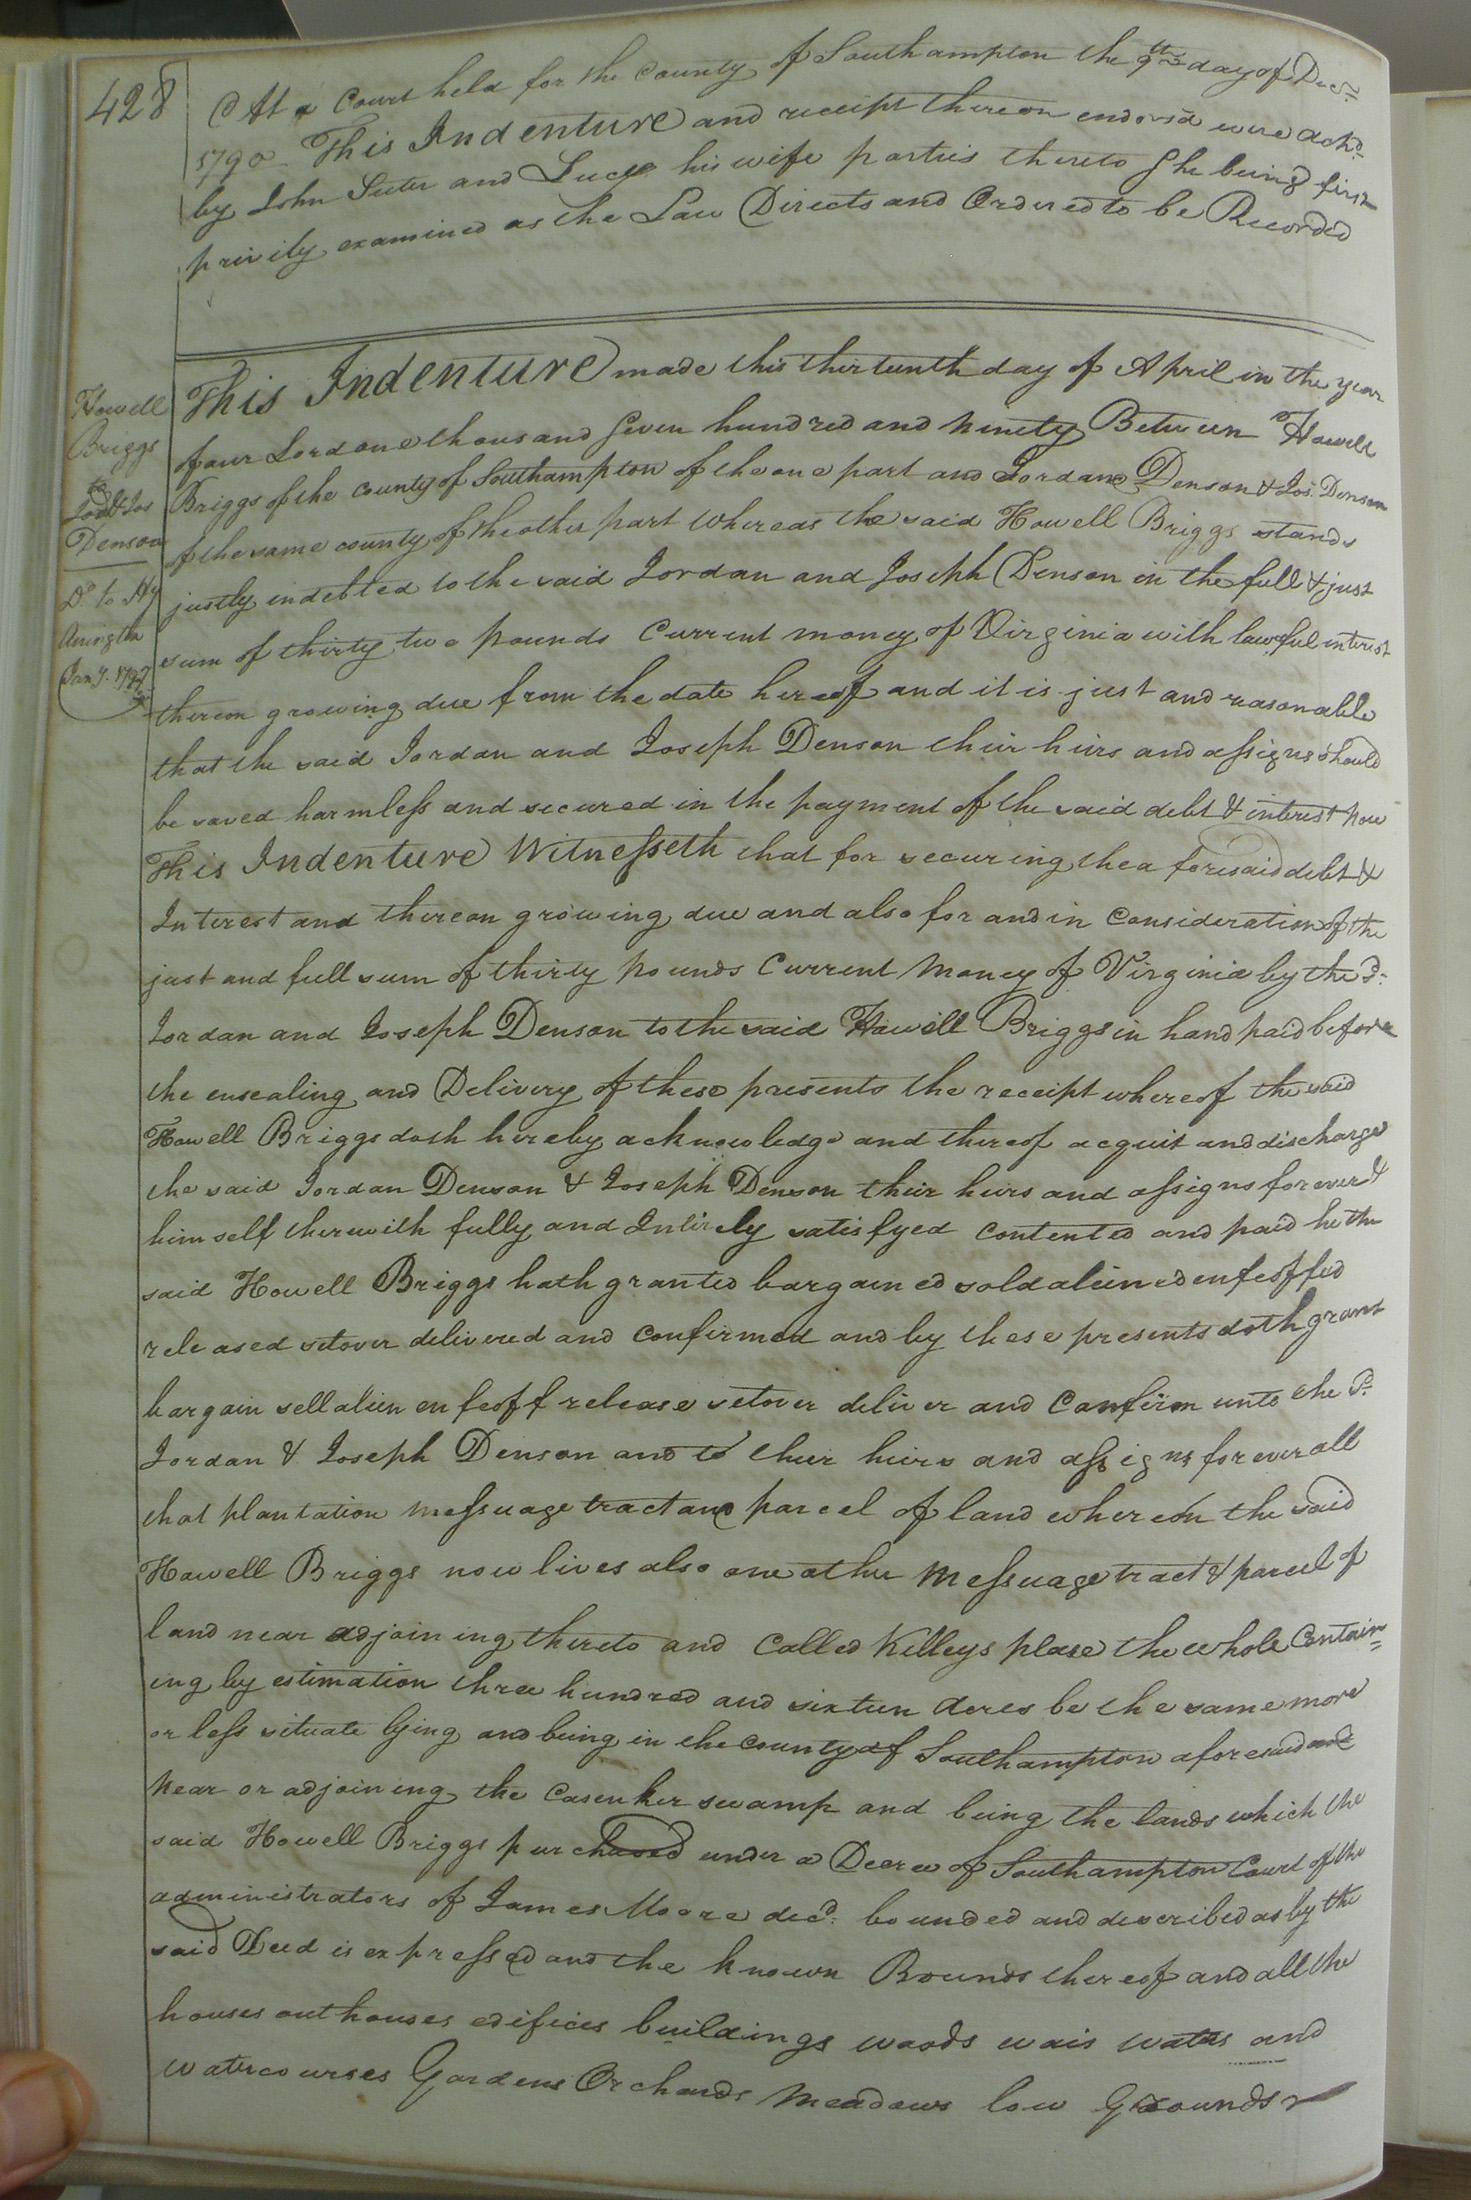 428
At a Court held for the County of Southampton the 9th day of Decr.
1790 This Indenture and receipt thereon endors'd were ackd.
by John Suter and Lucy his wife parties thereto She being first
privily examined as the Law Directs and Ordered to be Recorded
Howell
Briggs
to
Jord & Jos
Denson
Dd. to Hy
Arington
Jany. 1797
This Indenture made this thirteenth day of April in the year
of our Lord one thousand Seven hundred and Ninety Between Howell
Briggs of the county of Southampton of the one part and Jordan Denson & Jos. Denson
of the same county of the other part Whereas the said Howell Briggs stands
justly indebted to the said Jordan and Joseph Denson in the full & just
sum of thirty two pounds Current money of Virginia with lawful interest
thereon growing due from the date hereof and it is just and reasonable
that the said Jordan and Joseph Denson their heirs and assigns should
be saved harmless and secured in the payment of the said debt & interest Now
This Indenture Witnesseth that for securing the aforesaid debt &
Interest and thereon growing due and also for and in Consideration of the
just and full sum of thirty pounds Current Money of Virginia by the sd.
Jordan and Joseph Denson to the said Howell Briggs in hand paid before
the ensealing and Delivery of these presents the receipt whereof the said
Howell Briggs doth hereby acknowledge and thereof acquit and discharge
the said Jordan Denson & Joseph Denson their heirs and assigns forever &
himself therewith fully and Intirely satisfyed contented and paid he the
said Howell Briggs hath granted bargained sold aliened enfeoffed
released setover delivered and confirmed and by these presents doth grant
bargain sell alien enfeoff release setover deliver and Confirm unto the sd.
Jordan & Joseph Denson and to their heirs and assigns forever all
that plantation messuage tract and parcel of land whereon the said
Howell Briggs now lives also one other Messuage tract & parcel of
land near adjoining thereto and Called Killeys place the whole Contain=
ing by estimation three hundred and sixteen Acres be the same more
or less situate lying and being in the County of Southampton aforesaid and
Near or adjoining the Casenker swamp and being the lands which the
said Howell Briggs purchased under a Decree of Southampton Court of the
administrators of James Moore decd. bounded and described as by the
said Deed is expressed and the known Bounds thereof and all the
houses outhouses edifices buildings woods wais waters and
watercourses Gardens Orchards Meadows low Grounds